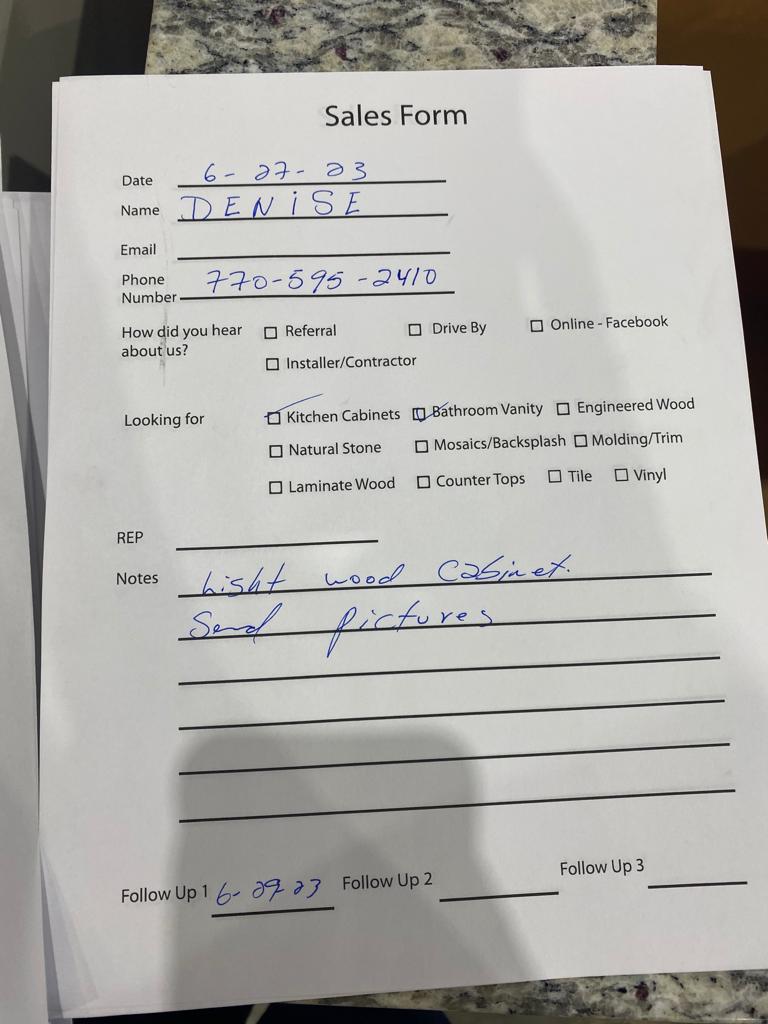 Sales Form
Date 6-27-23
Name DENiSE
Email
Phone Number 770-595-2410
How did you hear about us? ☐ Referral ☐ Drive By ☐ Online - Facebook
☐ Installer/Contractor
Looking for ☑ Kitchen Cabinets ☑ Bathroom Vanity ☐ Engineered Wood
☐ Natural Stone ☐ Mosaics/Backsplash ☐ Molding/Trim
☐ Laminate Wood ☐ Counter Tops ☐ Tile ☐ Vinyl
REP
Notes Light wood cabinet.
Send pictures
Follow Up 1 6-29-23 Follow Up 2 Follow Up 3